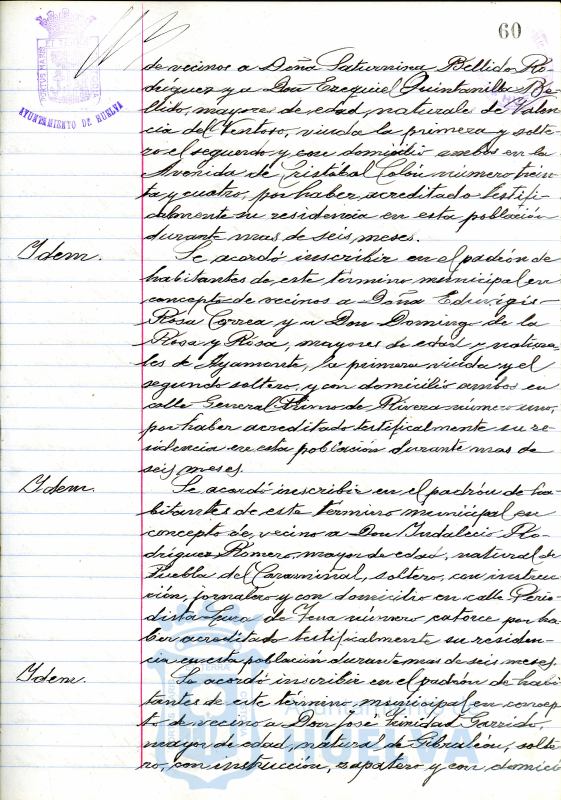 60
PORTUS MARIS
AYUNTAMIENTO DE HUELVA
de vecinos a Doña Saturnina Bellido Ro-
dríguez y a Don Ezequiel Quintanilla Be-
llido, mayores de edad, naturales de Valen-
cia del Ventoso, viuda la primera y solte-
ro el segundo y con domicilio ambos en la
Avenida de Cristóbal Colón número trein-
ta y cuatro, por haber acreditado testifi-
calmente su residencia en esta población
durante mas de seis meses.
Idem.
Se acordó inscribir en el padrón de
habitantes de este término municipal en
concepto de vecinos a Doña Eduvigis
Rosa Correa y a Don Domingo de la
Rosa y Rosa, mayores de edad y natura-
les de Ayamonte, la primera viuda y el
segundo soltero, y con domicilio ambos en
calle General Primo de Rivera número uno,
por haber acreditado testificalmente su re-
sidencia en esta población durante mas de
seis meses.
Idem.
Se acordó inscribir en el padrón de ha-
bitantes de este término municipal en
concepto de vecino a Don Indalecio Ro-
dríguez Romero, mayor de edad, natural de
Puebla del Caramiñal, soltero, con instruc-
ción, jornalero y con domicilio en calle Perio-
dista Luca de Tena número catorce por ha-
ber acreditado testificalmente su residen-
cia en esta población durante mas de seis meses.
Idem.
Se acordó inscribir en el padrón de habi-
tantes de este término municipal en concep-
to de vecino a Don José Trinidad Garrido,
mayor de edad, natural de Gibraleón, solte-
ro, con instrucción, zapatero y con domici-
HUELVA